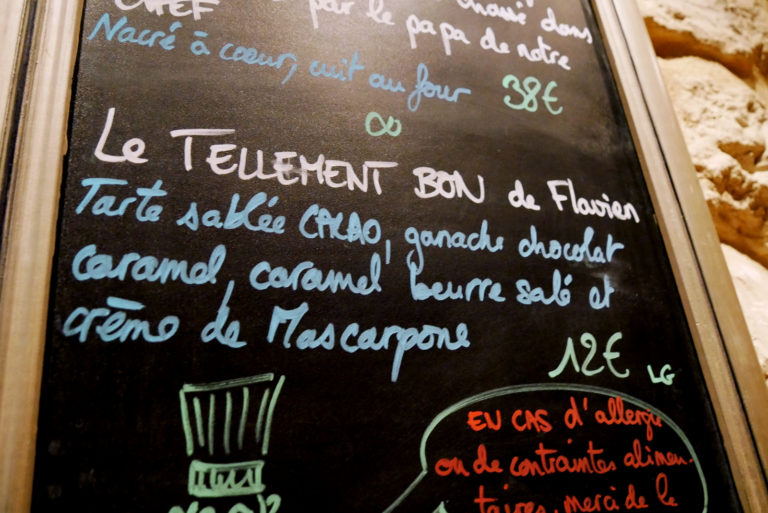 CHEF par le papa de notre
Nacré à coeur, cuit au four 38€
Le TELLEMENT BON de Flavien
Tarte sablée CACAO, ganache chocolat
caramel, caramel beurre salé et
crème de Mascarpone
12€ LG
EN CAS d'allergie
ou de contraintes alimen-
taires, merci de le